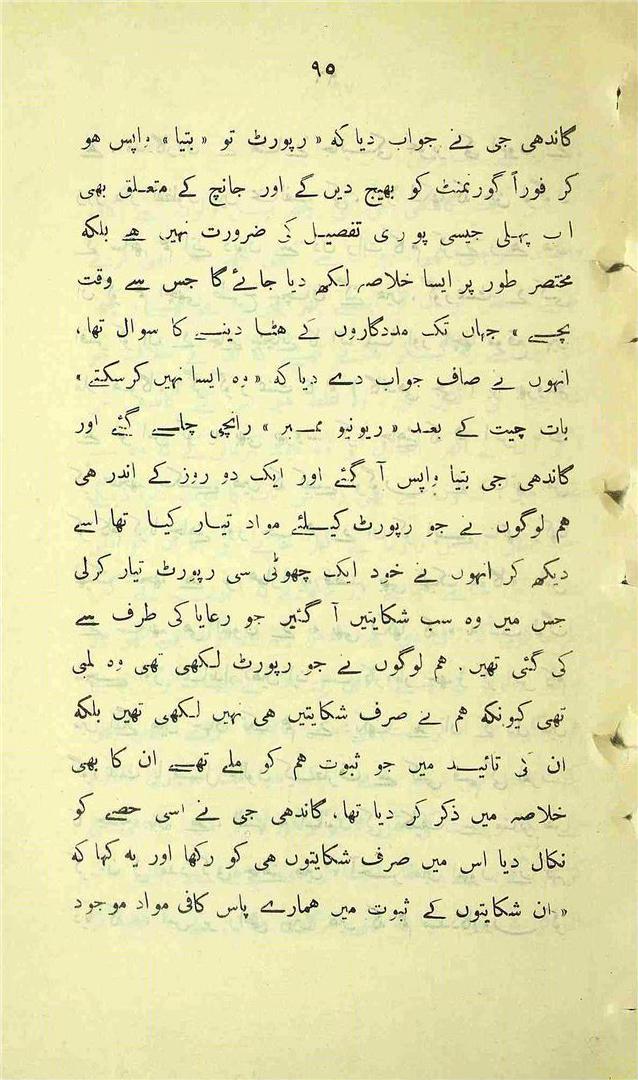 ٩٥
گاندھی جی نے جواب دیا که « رپورٹ تو « بتیا » واپس هو
کر فوراً گورنمنٹ کو بھیج دیں گے اور جانچ کے متعلق بھی
اب پہلی جیسی پوری تفصیل کی ضرورت نہیں هے بلکه
مختصر طور پر ایسا خلاصه لکھ دیا جائے گا جس سے وقت
بچے » جہاں تک مددگاروں کے هٹا دینے کا سوال تھا،
انہوں نے صاف جواب دے دیا که « وه ایسا نہیں کرسکتے »
بات چیت کے بعد « ریونیو ممبر » رانچی چلے گئے اور
گاندھی جی بتیا واپس آ گئے اور ایک دو روز کے اندر هی
هم لوگوں نے جو رپورٹ کیلئے مواد تیار کیا تھا اسے
دیکھ کر انہوں نے خود ایک چھوٹی سی رپورٹ تیار کرلی
جس میں وه سب شکایتیں آ گئیں جو رعایا کی طرف سے
کی گئی تھیں. هم لوگوں نے جو رپورٹ لکھی تھی وه لمبی
تھی کیونکه هم نے صرف شکایتیں هی نہیں لکھی تھیں بلکه
ان کی تائید میں جو ثبوت هم کو ملے تھے ان کا بھی
خلاصه میں ذکر کر دیا تھا، گاندھی جی نے اسی حصے کو
نکال دیا اس میں صرف شکایتوں هی کو رکھا اور یه کہا که
« ان شکایتوں کے ثبوت میں همارے پاس کافی مواد موجود